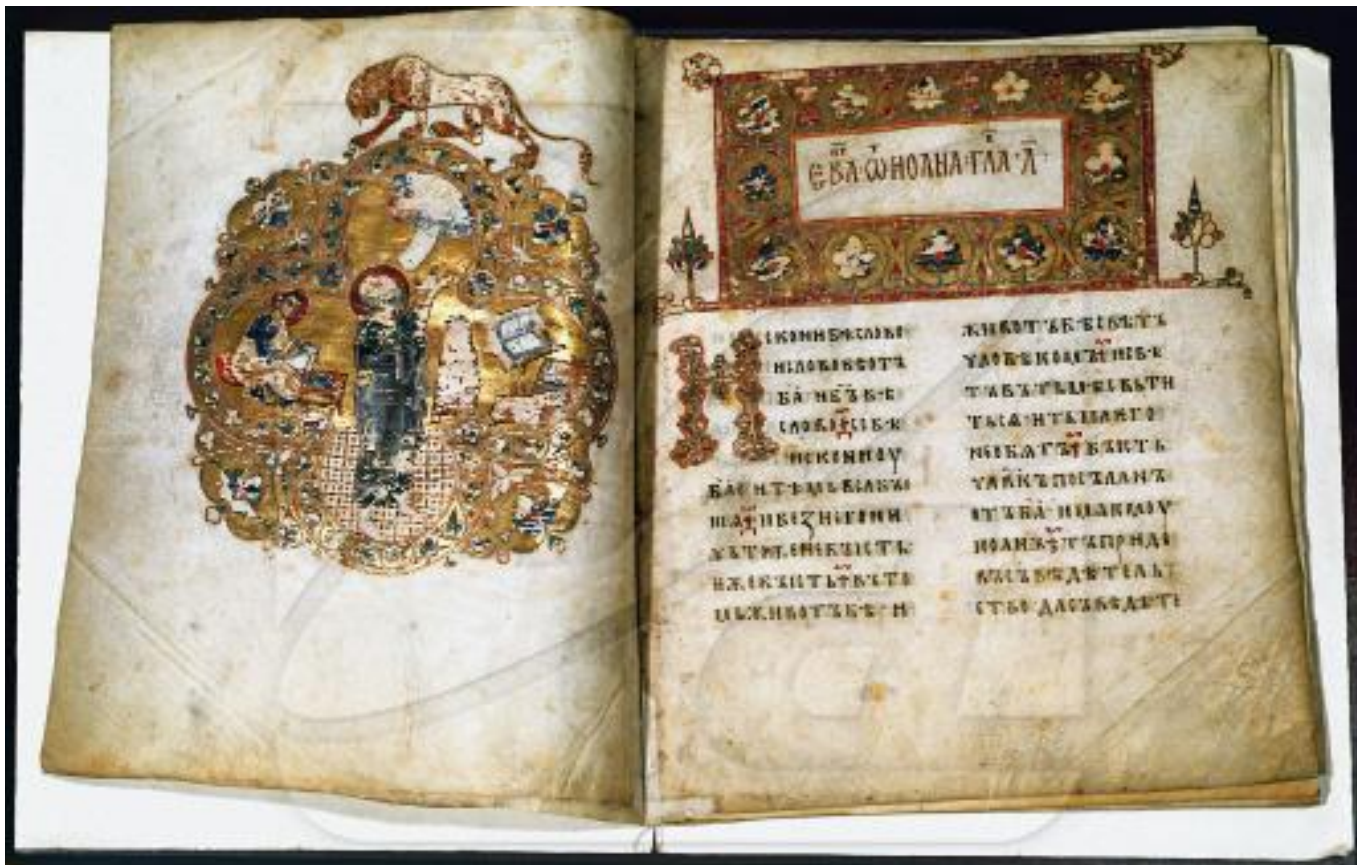 ЕВⷢ҇А · Ѡⷮ ИОАНА · ГЛАⷡ · А҃ ·
ИСКОНИ БѢ СЛОВО
И СЛОВО БѢ ОТЪ
Б҃А · И Б҃Ъ БѢ
СЛОВО СЕ БѢ
ИСКОНИ ОУ
Б҃А · И ТѢМЬ ВЬСꙖ БЫ
ШѦ И БЕЗ НЕГО НИ
ЧЬТОЖЕ НЕ БЫСТЬ
ѤЖЕ БЫСТЬ ВЪ ТО
МЬ ЖИВОТЪ БѢ · И
ЖИВОТЪ БѢ СВѢТЪ
ЧЛОВѢКОМЪ И СВѢ
ТЪ ВЪ ТЬМѢ СВЬТИ
ТЬСѦ · И ТЬМА ѤГО
НЕ ОБѦТЪ БЫСТЬ
ЧЛ҃ВКЪ ПОСЪЛАНЪ
ОТЪ Б҃А · ИМѦ ѤМОУ
ИОАНЪ ТЪ ПРИДЕ
ВЪ СЪВѢДѢТЕЛЬ
СТВО · ДА СЪВѢДѢТЕ